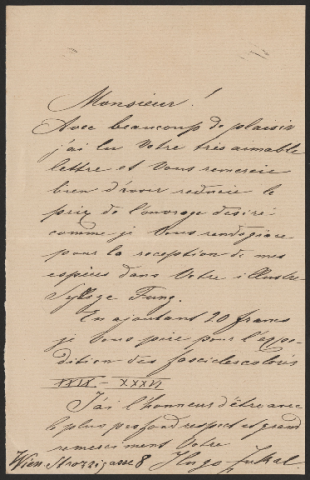 Monsieur!
Avec beaucoup de plaisir
j'ai lu Votre très aimable
lettre et Vous remercie
bien d'avoir reducie le
prix de l'ouvrage desiré
comme je Vous rends grace
pour la reception de mes
espèces dans Votre illustre
Sylloge Fung.
En ajoutant 20 francs
je Vous prie pour l'expe-
dition des fascicles
XXIX - XXXVI
J'ai l'honneur d'être avec
le plus profond respect et grand
remerciment Votre
Wien Strozzigasse 8 Hugo Zukal